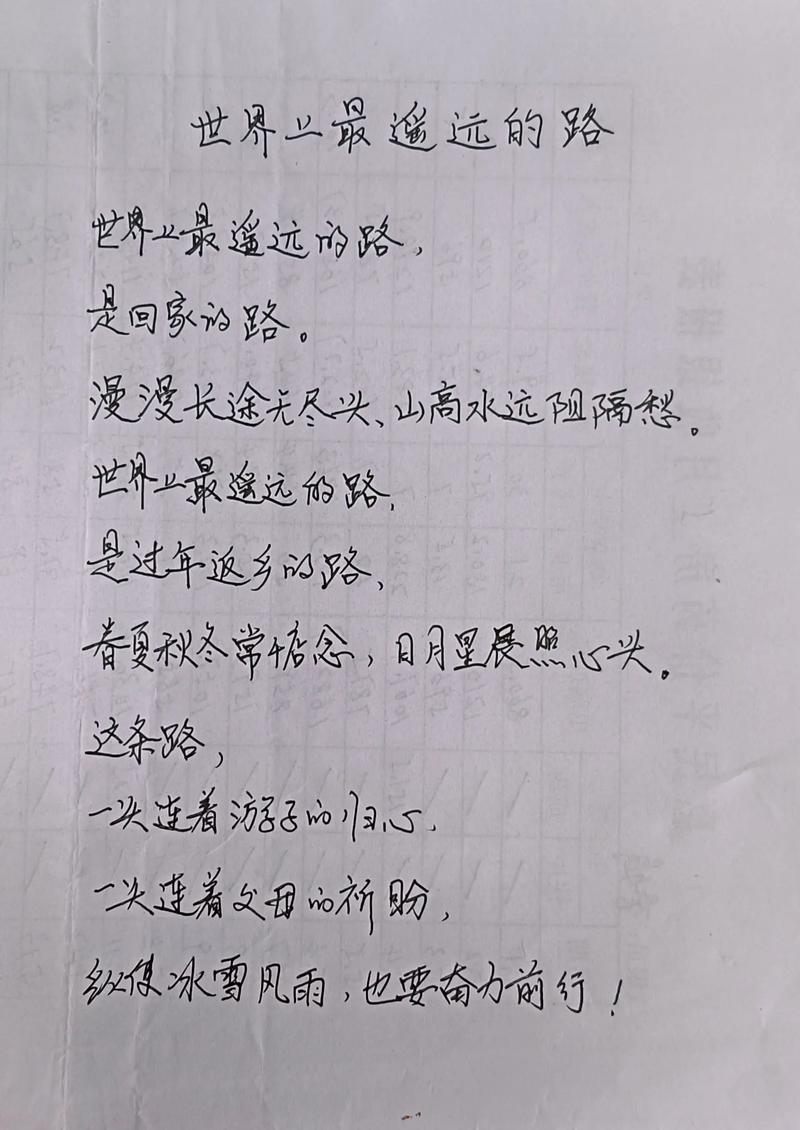 世界上最遥远的路
世界上最遥远的路，
是回家的路。
漫漫长途无尽头、山高水远阻隔愁。
世界上最遥远的路，
是过年返乡的路，
春夏秋冬常惦念，日月星晨照心头。
这条路，
一头连着游子的归心，
一头连着父母的祈盼，
纵使冰雪风雨，也要奋力前行！